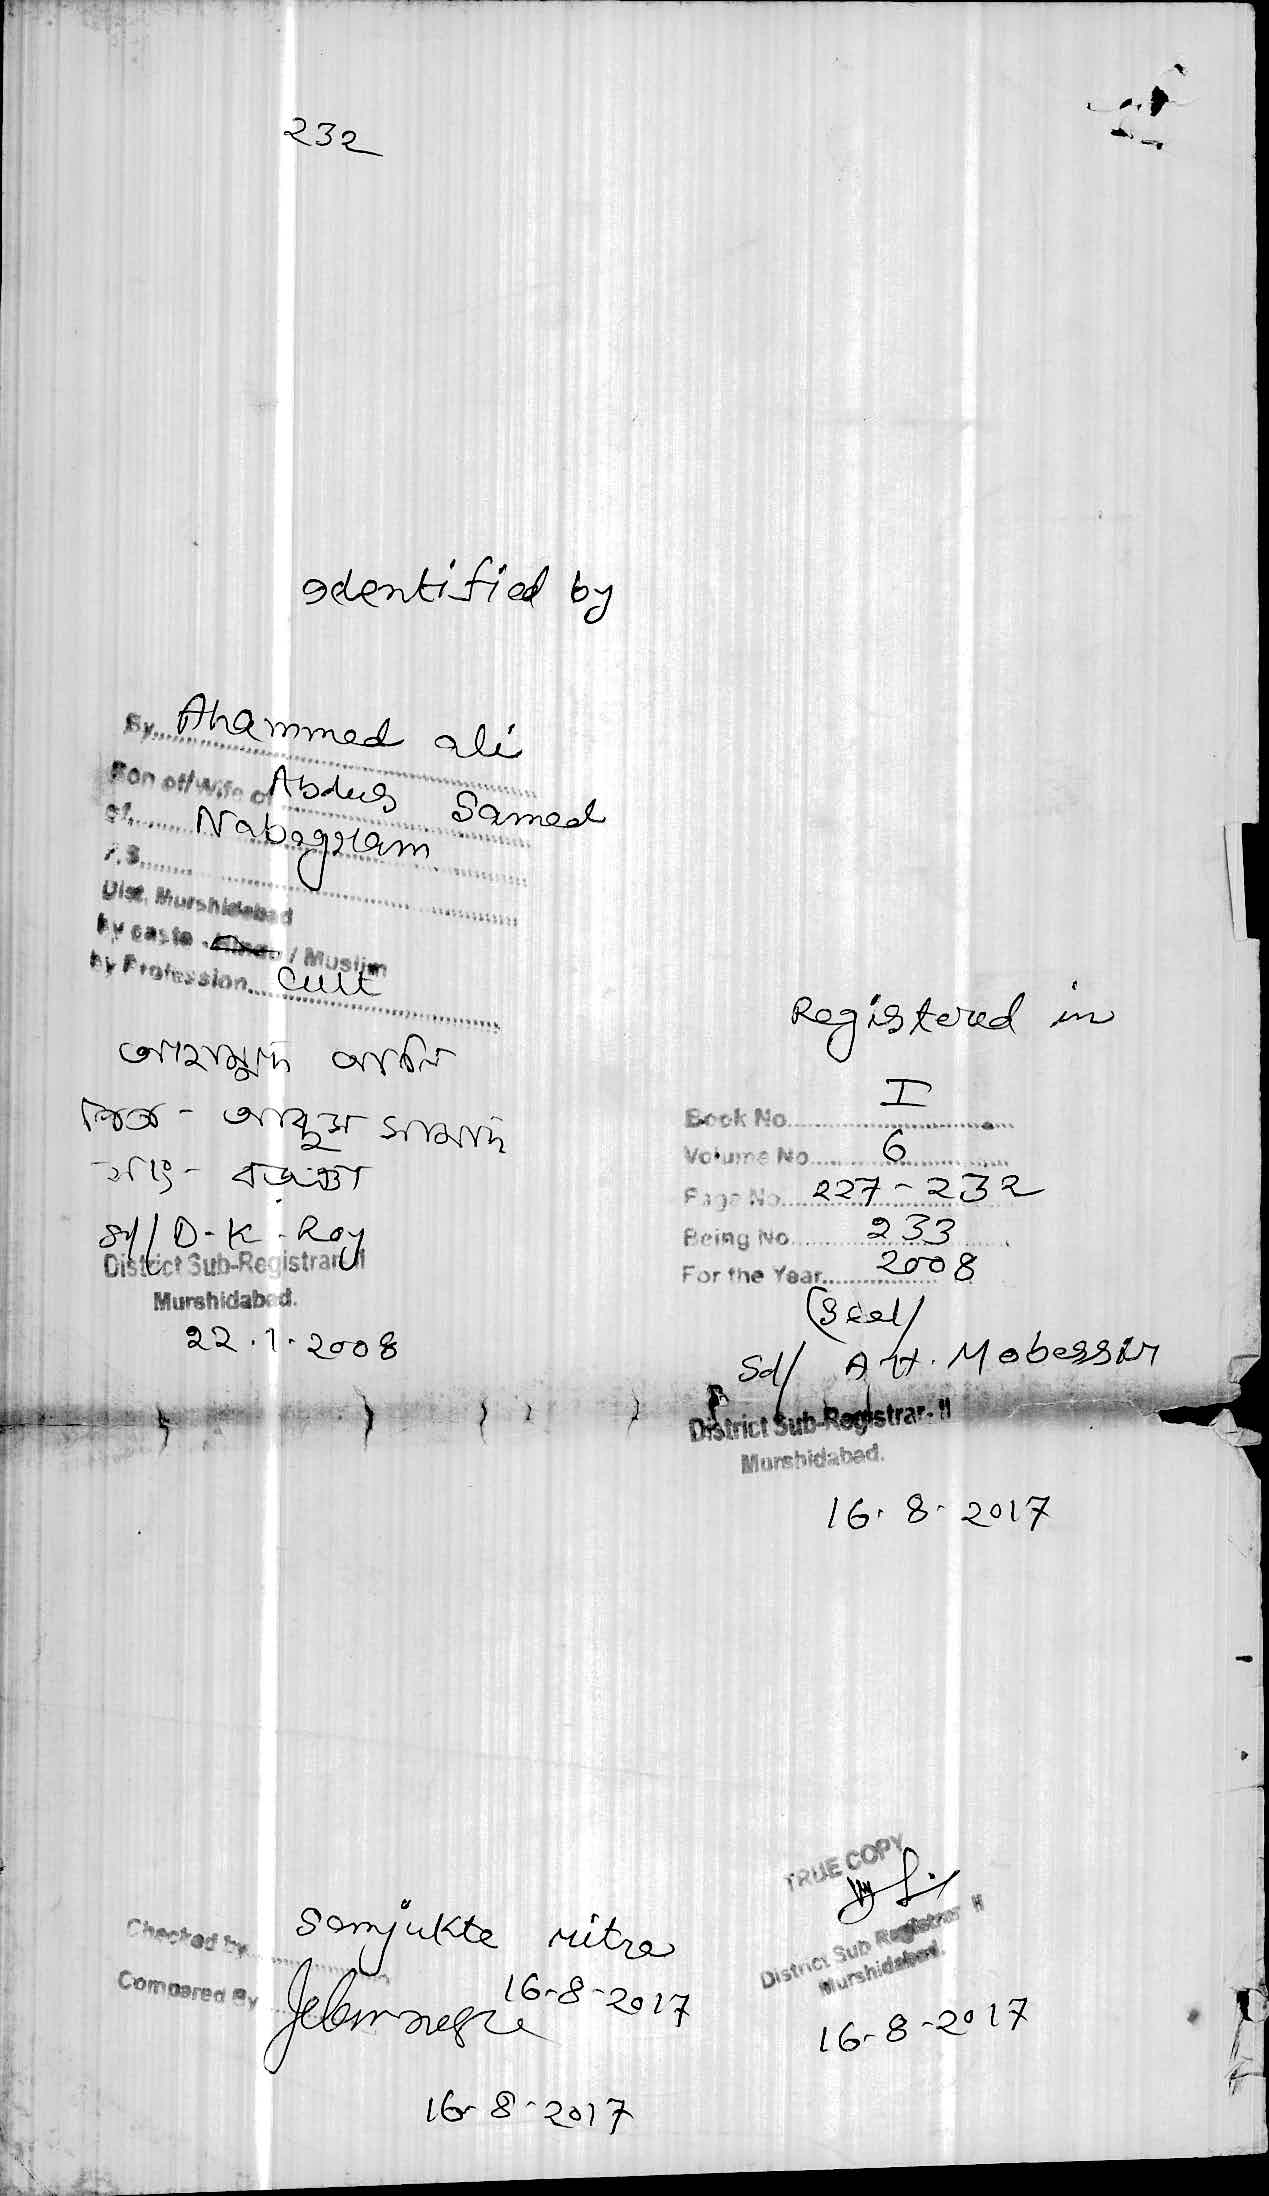 232
Identified by
By Ahammed ali
Son of/Wife of Abdus Samed
of Nabagram
P.S.
Dist. Murshidabad
by caste Hindu / Muslim
by Profession Cult
আহাম্মদ আলি
পিতা - আব্দুস সামাদ
সাং -
Sd/ D. K. Roy
District Sub-Registrar-II
Murshidabad.
22.1.2008
Registered in
Book No. I
Volume No. 6
Page No. 227 - 232
Being No. 233
For the Year 2008
(Seal)
Sd/ A H. Mobassir
District Sub-Registrar-II
Murshidabad.
16.8.2017
TRUE COPY
District Sub Registrar II
Murshidabad.
16-8-2017
Checked by Samjukta Mitra
16-8-2017
Compared By
16-8-2017